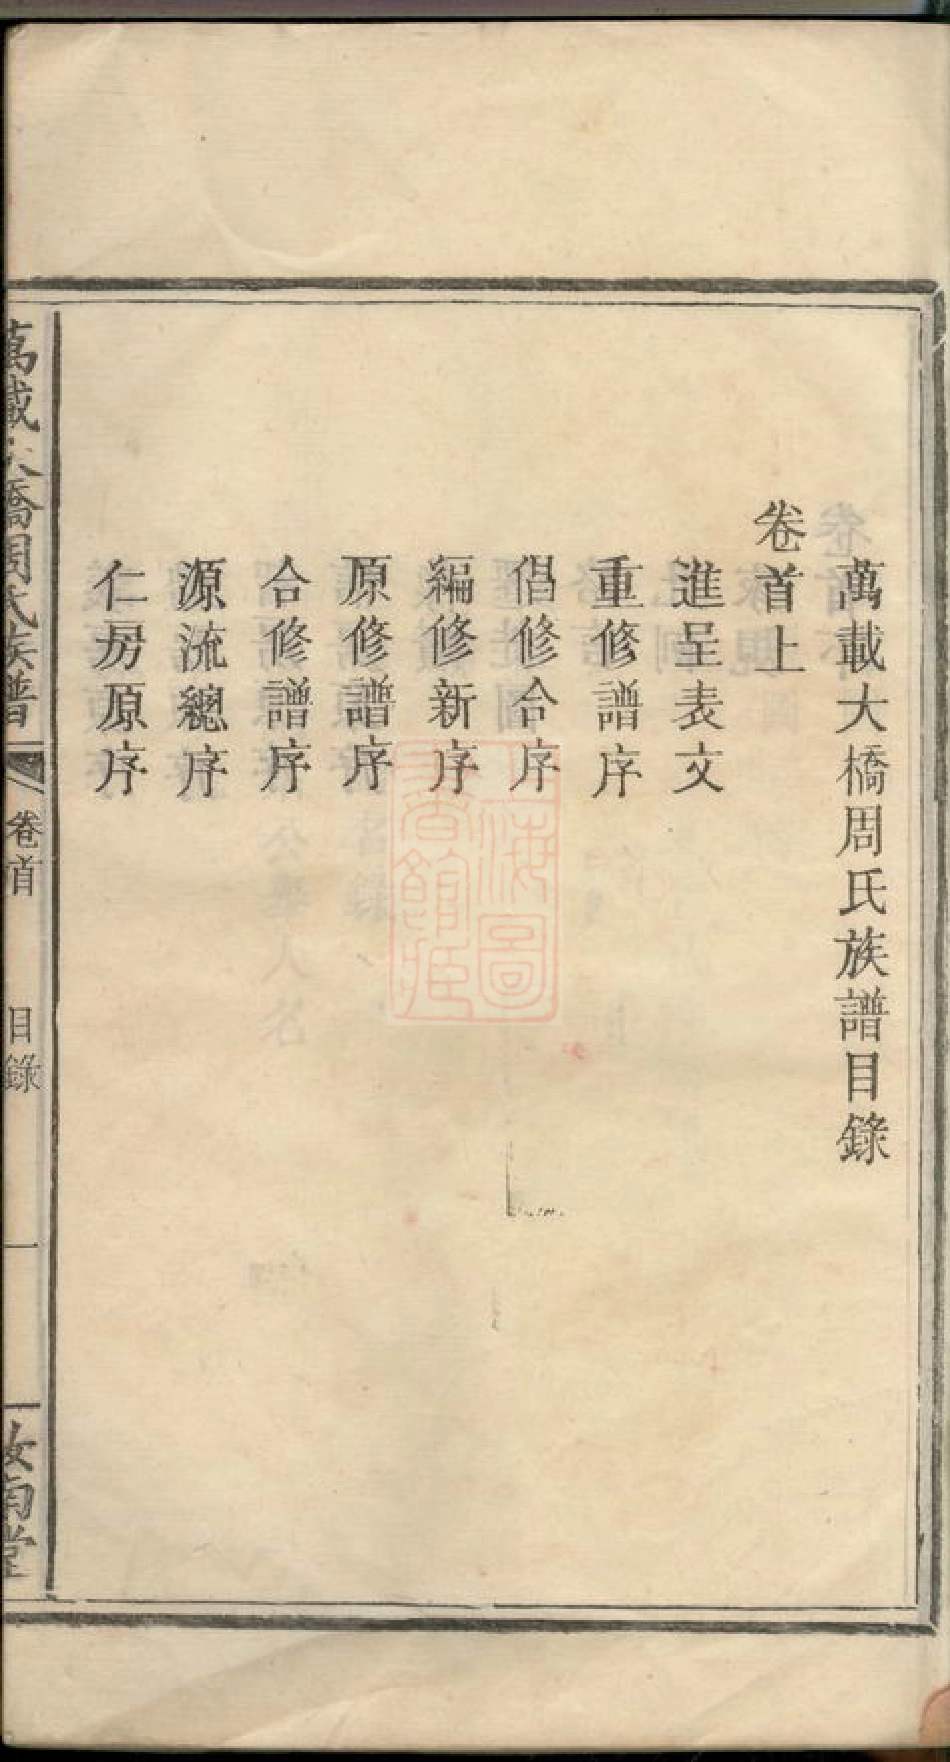 萬載大橋周氏族譜目錄
卷首上
進呈表文
重修譜序
倡修合序
編修新序
原修譜序
合修譜序
源流總序
仁房原序
萬載大橋周氏族譜
卷首
目錄
一
汝南堂